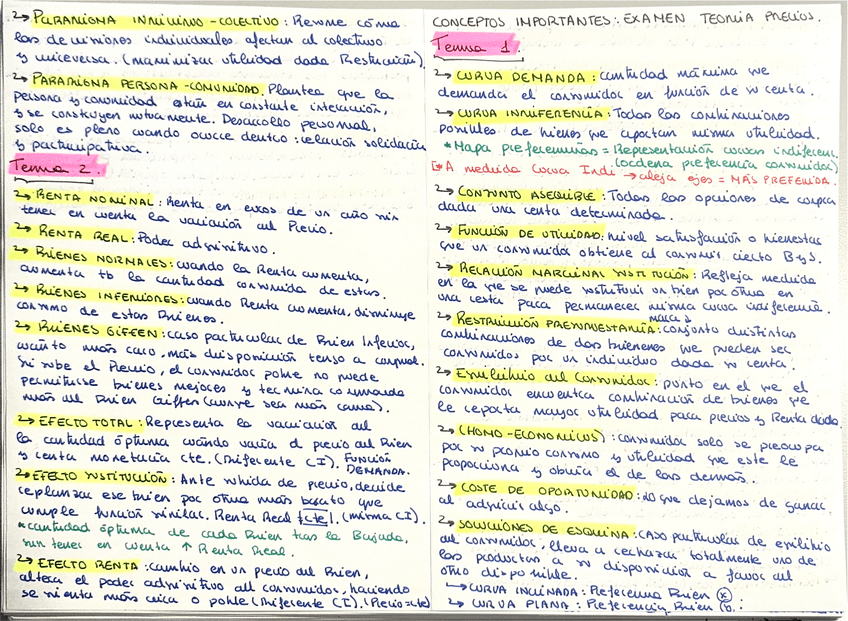 → PARADIGMA INDIVIDUO-COLECTIVO: Resume cómo
las decisiones individuales afectan al colectivo
y viceversa. (maximizar utilidad dada Restricción)
→ PARADIGMA PERSONA-COMUNIDAD. Plantea que la
persona y comunidad están en constante interacción,
y se construyen mutuamente. Desarrollo personal,
solo es pleno cuando ocurre dentro: relación solidaria
y participativa.
Tema 2.
→ RENTA NOMINAL: Renta en euros de un año sin
tener en cuenta la variación del Precio.
→ RENTA REAL: Poder adquisitivo.
→ BIENES NORMALES: cuando la Renta aumenta,
aumenta tb la cantidad consumida de estos.
→ BIENES INFERIORES: cuando Renta aumenta, disminuye
consumo de estos Bienes.
→ BIENES GIFFEN: caso particular de Bien Inferior,
cuánto más caro, más disposición tengo a comprar.
Si sube el Precio, el consumidor pobre no puede
permitirse bienes mejores y termina consumiendo
más del Bien Giffen (aunque sea más caro).
→ EFECTO TOTAL: Representa la variación del
la cantidad óptima cuando varía el precio del Bien
y renta monetaria cte. (Diferente CI). FUNCIÓN
DEMANDA.
→ EFECTO SUSTITUCIÓN: Ante subida de precio, decide
reemplazar ese bien por otro más barato que
cumple función similar. Renta Real cte. (misma CI).
*cantidad óptima de cada Bien tras la Bajada,
sin tener en cuenta ↑ Renta Real.
→ EFECTO RENTA: cambio en un precio del Bien,
altera el poder adquisitivo del consumidor, haciendo
se sienta más rico o pobre (Diferente CI). (Precio=cte)
CONCEPTOS IMPORTANTES: EXAMEN TEORÍA PRECIOS.
Tema 1
→ CURVA DEMANDA: cantidad máxima que
demanda el consumidor en función de su renta.
→ CURVA INDIFERENCIA: Todas las combinaciones
posibles de bienes que aportan misma utilidad.
*Mapa preferencias = Representación curvas indiferenc.
(ordena preferencia consumidor)
[*A medida Curva Indi → aleja ejes = MÁS PREFERIDA.
→ CONJUNTO ASEQUIBLE: Todas las opciones de compra
dada una renta determinada.
→ FUNCIÓN DE UTILIDAD: nivel satisfacción o bienestar
que un consumidor obtiene al consumir cierto B y S.
→ RELACIÓN MARGINAL SUSTITUCIÓN: Refleja medida
en la que se puede sustituir un bien por otro en
una cesta para permanecer misma curva indiferencia.
→ RESTRICCIÓN PRESUPUESTARIA: conjunto distintas
combinaciones de dos bienes que pueden ser
consumidos por un individuo dada su renta.
→ Equilibrio del Consumidor: punto en el que el
consumidor encuentra combinación de bienes que
le reporta mayor utilidad para precios y Renta dada.
→ (HOMO-ECONOMICUS): consumidor solo se preocupa
por su propio consumo y utilidad que este le
proporciona y obvia el de los demás.
→ COSTE DE OPORTUNIDAD: Lo que dejamos de ganar
al adquirir algo.
→ SOLUCIONES DE ESQUINA: CASO particular de equilibrio
del consumidor, lleva a rechazar totalmente uno de
los productos a su disposición a favor del
otro disponible.
→ CURVA INCLINADA: Preferencia Bien (x).
→ CURVA PLANA: Preferencia Bien